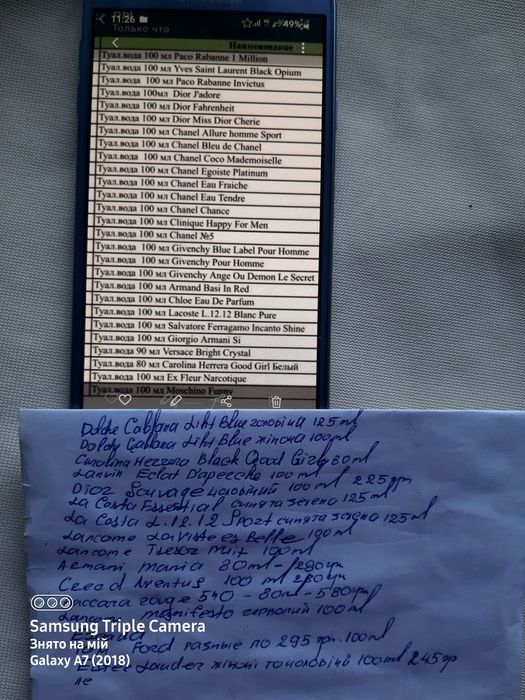 11:26
49%
Только что
Наименование
Туал.вода 100 мл Paco Rabanne 1 Million
Туал.вода 100 мл Yves Saint Laurent Black Opium
Туал.вода 100 мл Paco Rabanne Invictus
Туал.вода 100мл Dior J'adore
Туал.вода 100 мл Dior Fahrenheit
Туал.вода 100 мл Dior Miss Dior Cherie
Туал.вода 100 мл Chanel Allure homme Sport
Туал.вода 100 мл Chanel Bleu de Chanel
Туал.вода 100 мл Chanel Coco Mademoiselle
Туал.вода 100 мл Chanel Egoiste Platinum
Туал.вода 100 мл Chanel Eau Fraiche
Туал.вода 100 мл Chanel Eau Tendre
Туал.вода 100 мл Chanel Chance
Туал.вода 100 мл Clinique Happy For Men
Туал.вода 100 мл Chanel №5
Туал.вода 100 мл Givenchy Blue Label Pour Homme
Туал.вода 100 мл Givenchy Pour Homme
Туал.вода 100 мл Givenchy Ange Ou Demon Le Secret
Туал.вода 100 мл Armand Basi In Red
Туал.вода 100 мл Chloe Eau De Parfum
Туал.вода 100 мл Lacoste L.12.12 Blanc Pure
Туал.вода 100 мл Salvatore Ferragamo Incanto Shine
Туал.вода 100 мл Giorgio Armani Si
Туал.вода 90 мл Versace Bright Crystal
Туал.вода 80 мл Carolina Herrera Good Girl Белый
Туал.вода 100 мл Ex Fleur Narcotique
Туал.вода 100 мл Moschino Funny
Blue 125 ml
Blue жіноча 100ml
Black Good Girl 80ml
Lanvin Eclat 100 ml
Dior Sauvage 100 ml 225грн
La Costa Essential синята зелена 125ml
La Costa L.12.12 Sport синята 125ml
Lancome Belle 100ml
Lancome 100ml
Armani mania 80ml -
Creed Aventus 100 ml
540 - 80ml - 580грн
manifesto червоний 100ml
Ford разные по 295грн. 100ml
Estee Lauder жіночі 100ml 245гр
Samsung Triple Camera
Знято на мій
Galaxy A7 (2018)